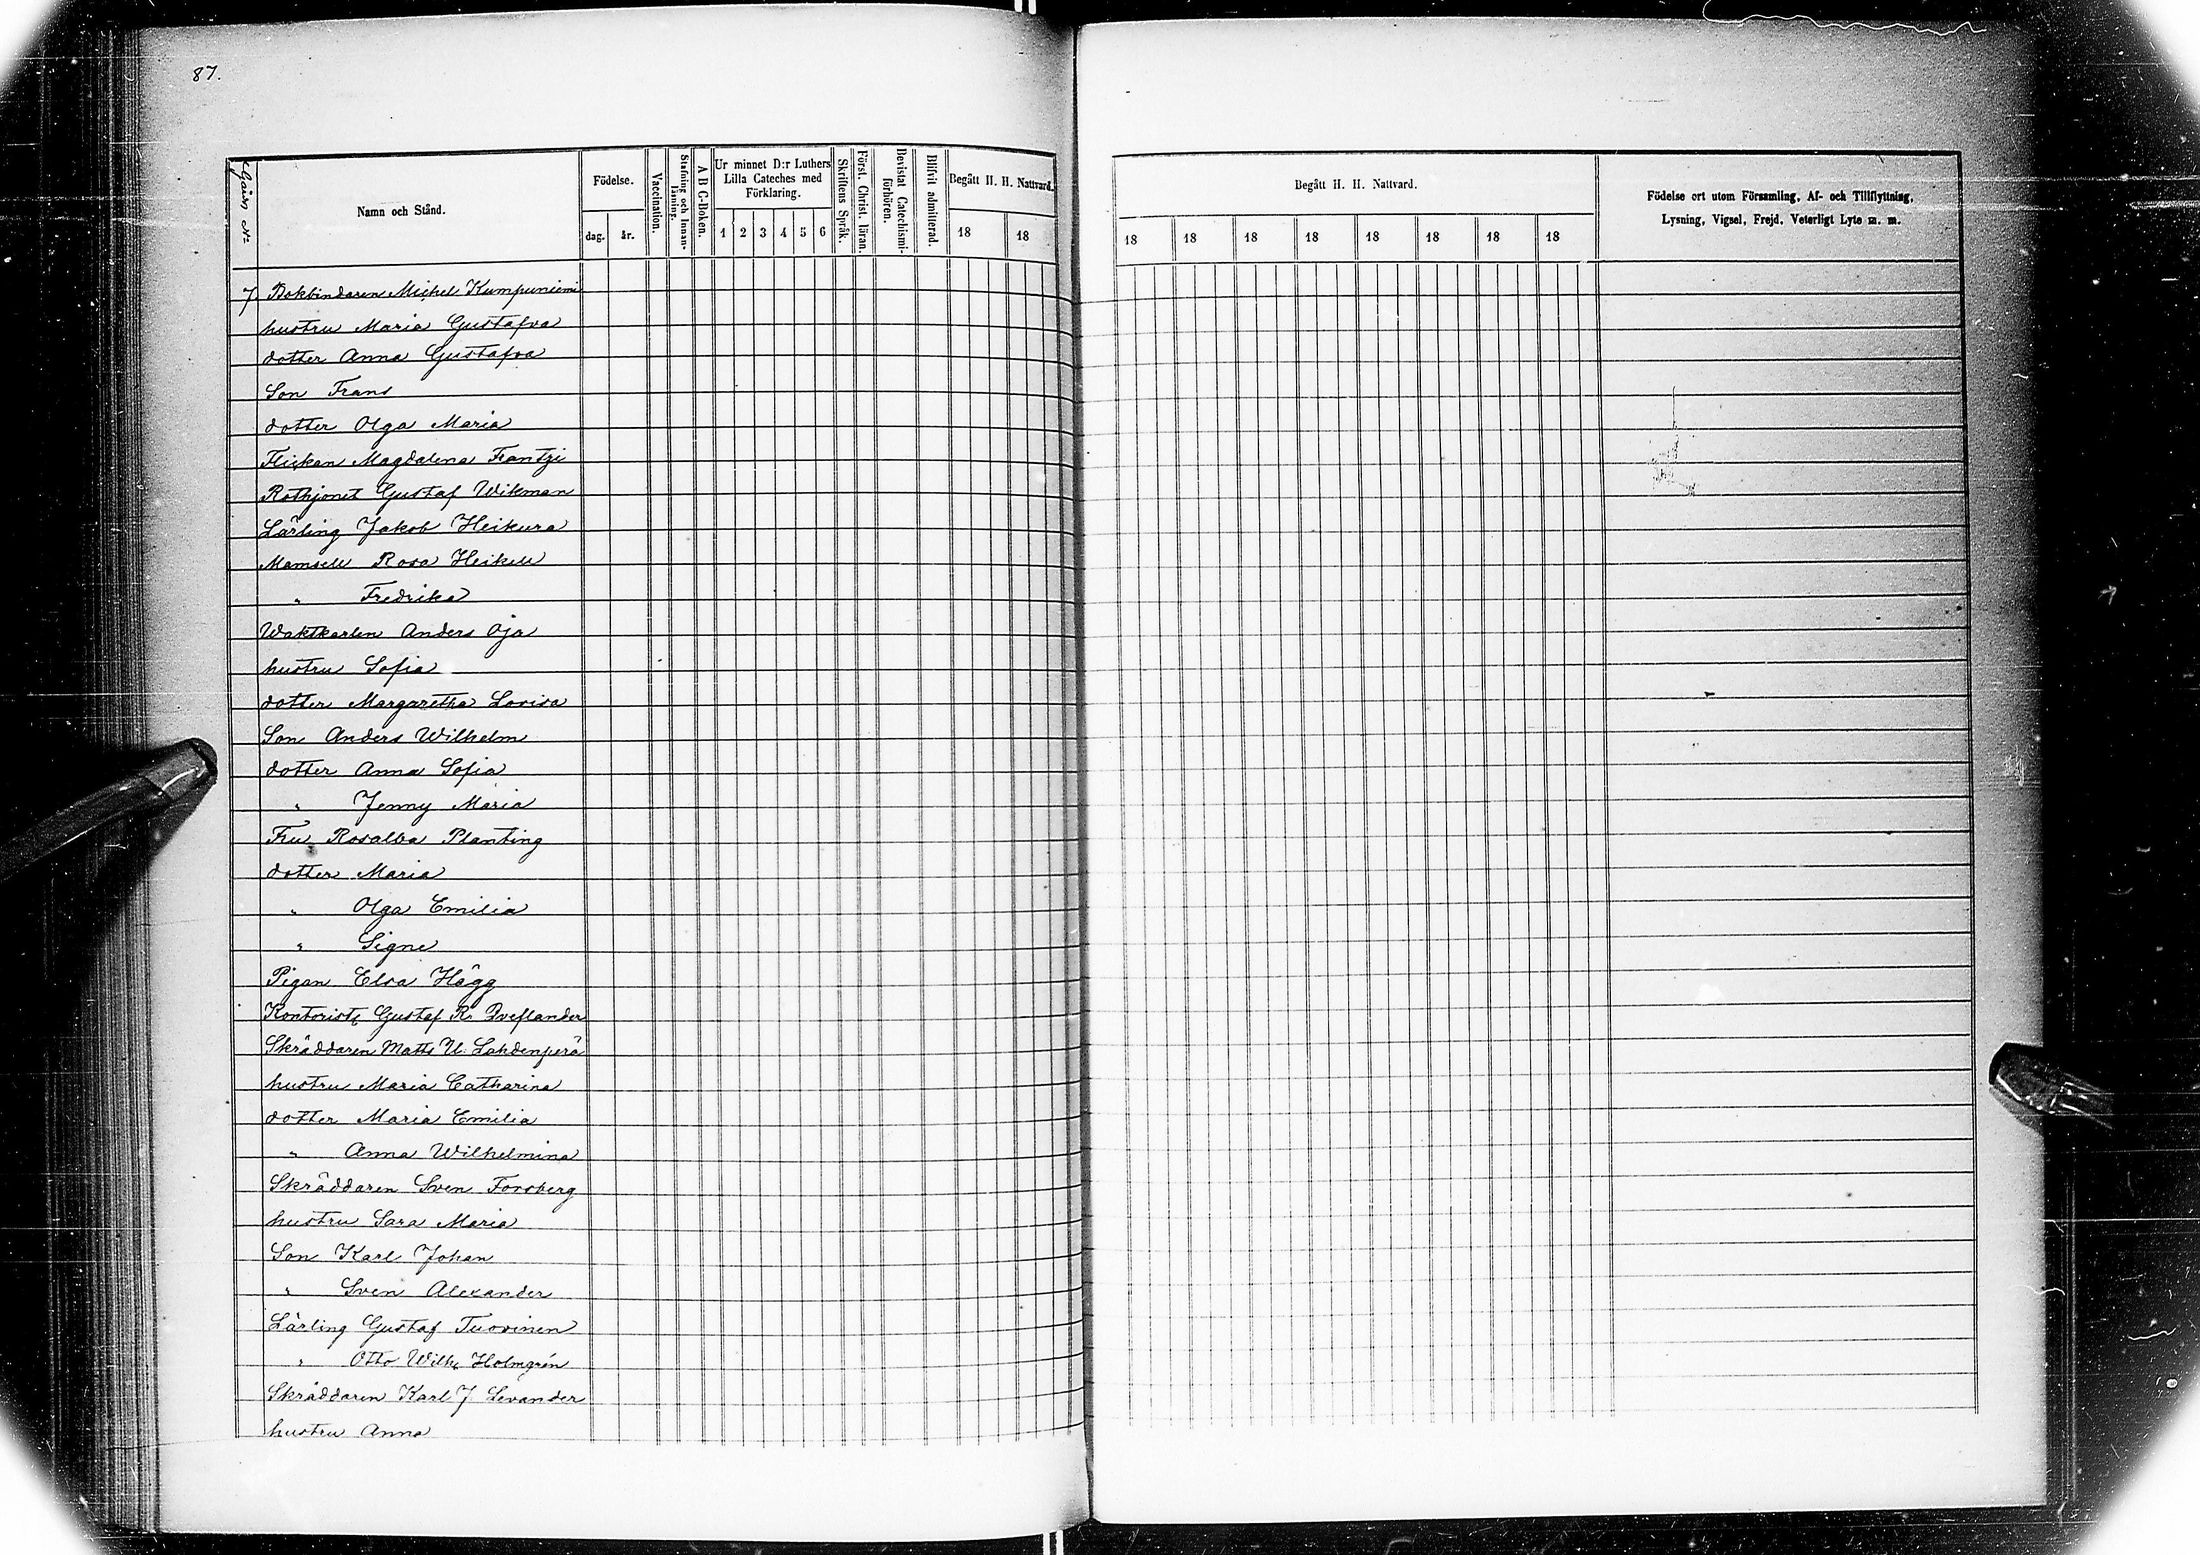 87.
Gårds No
Namn och Stånd.
Födelse.
dag.
år.
Vaccination.
Stafning och Innan-
läsning.
A B C-Boken.
Ur minnet D:r Luthers
Lilla Cateches med
Förklaring.
1 2 3 4 5 6
Skriftens Språk.
Först. Christ. läran.
Bevistat Catechismi-
förhören.
Blifvit admitterad.
Begått H. H. Nattvard.
18 18
Begått H. H. Nattvard.
18 18 18 18 18 18 18 18
Födelse ort utom Församling, Af- och Tillflyttning,
Lysning, Vigsel, Frejd, Veterligt Lyte m. m.
7 Bokbindaren Michel Kumpuniemi
hustru Maria Gustafva
dotter Anna Gustafva
Son Frans
dotter Olga Maria
Flickan Magdalena Frantzi
Rothjonet Gustaf Wikman
Lärling Jakob Heikura
Mamsell Rosa Heikell
" Fredrika
Waktkarlen Anders Oja
hustru Sofia
dotter Margaretha Lovisa
Son Anders Wilhelm
dotter Anna Sofia
" Jenny Maria
Fru Rosalba Planting
dotter Maria
" Olga Emilia
" Signe
Pigan Elsa Hägg
Kontorist Gustaf R. Qveflander
Skräddaren Matts U. Lahdenperä
hustru Maria Catharina
dotter Maria Emilia
" Anna Wilhelmina
Skräddaren Sven Forsberg
hustru Sara Maria
Son Karl Johan
" Sven Alexander
Lärling Gustaf Tuovinen
" Otto Wilh. Holmgrén
Skräddaren Karl J Levander
hustru Anna